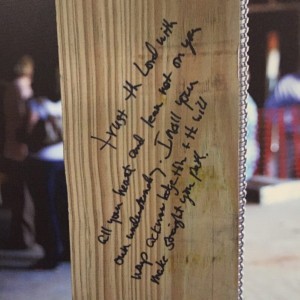 trust th Lord with
all your heart and lean not on you
own understanding. In all your
ways acknowledge Him + He will
make straight your path.